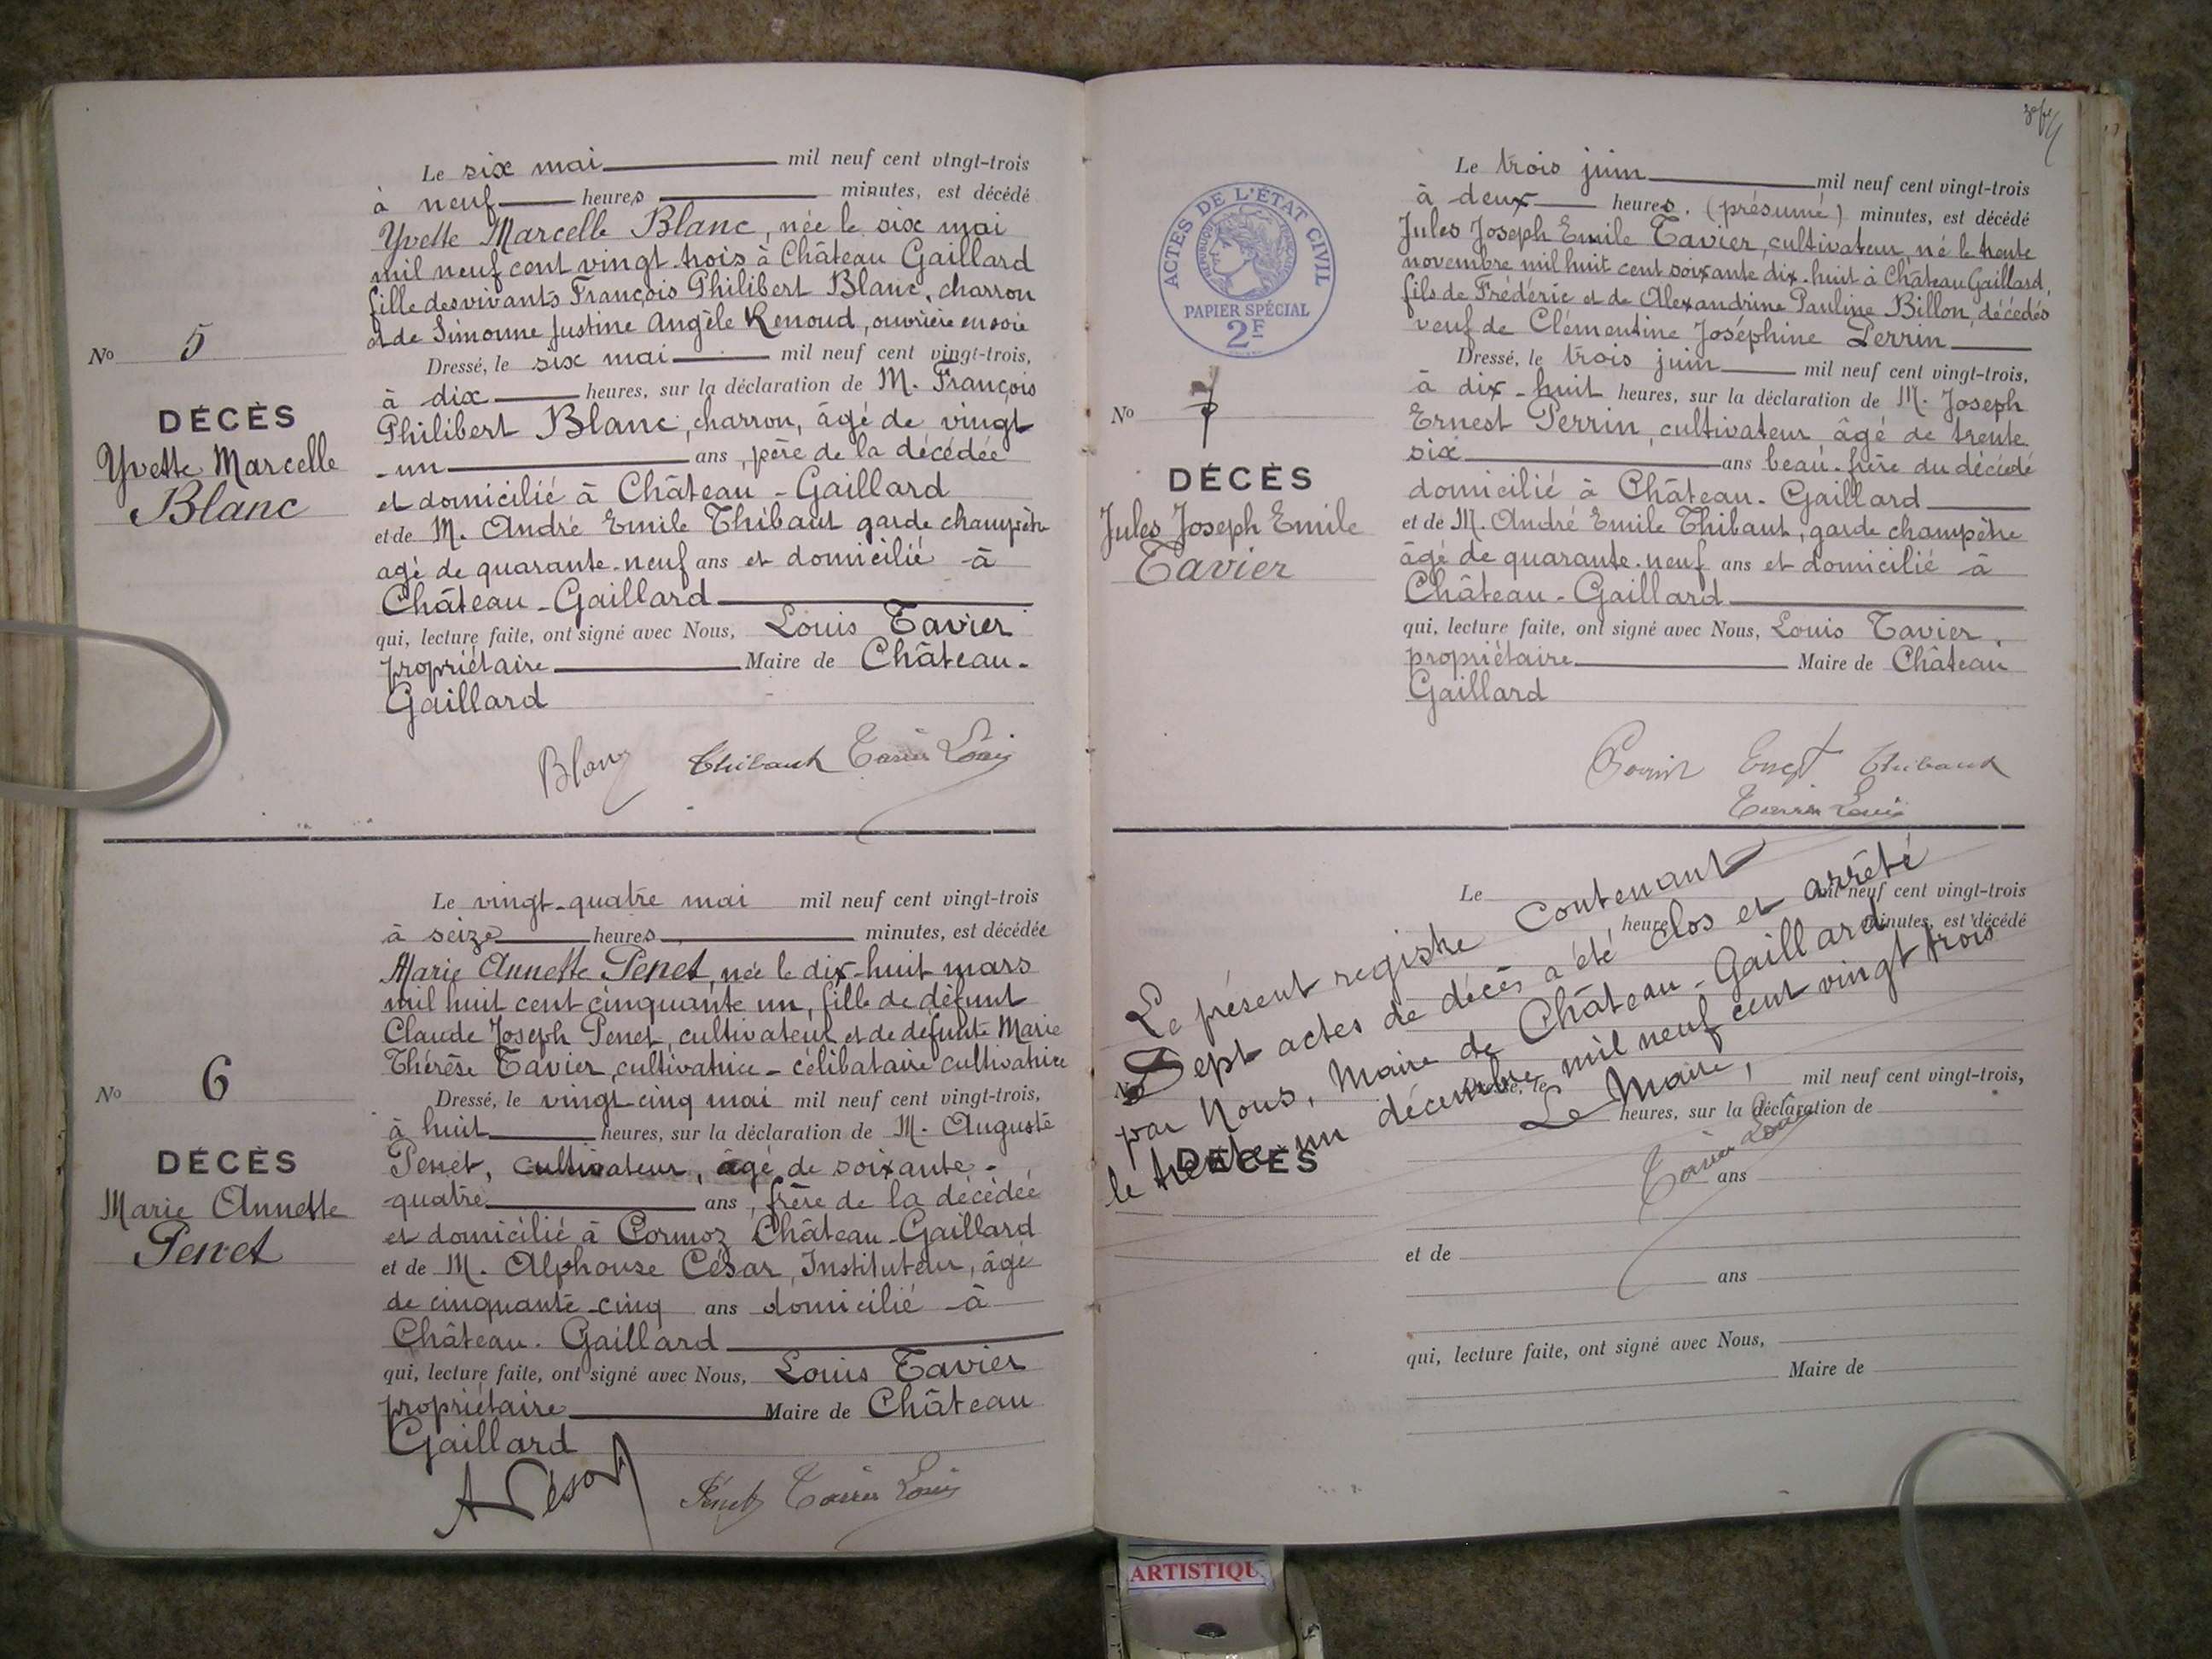 Le six mai mil neuf cent vingt-trois
à neuf heures minutes, est décédé
Yvette Marcelle Blanc, née le six mai
mil neuf cent vingt-trois à Château Gaillard
fille des vivants François Philibert Blanc, charron
et de Simonne Justine Angèle Renoud, ouvrière en soie
No 5
DÉCÈS
Yvette Marcelle
Blanc
Dressé, le six mai mil neuf cent vingt-trois,
à dix heures, sur la déclaration de M. François
Philibert Blanc, charron, âgé de vingt
-un ans, père de la décédée
et domicilié à Château-Gaillard
et de M. André Emile Thibaut garde champêtre
agé de quarante-neuf ans et domicilié à
Château-Gaillard
qui, lecture faite, ont signé avec Nous, Louis Tavier
propriétaire Maire de Château-
Gaillard
Blanc Thibaut Tavier Louis
Le vingt-quatre mai mil neuf cent vingt-trois
à seize heures minutes, est décédée
Marie Annette Penet, née le dix-huit mars
mil huit cent cinquante un, fille de défunt
Claude Joseph Penet, cultivateur et de défunte Marie
Thérèse Tavier, cultivatrice - célibataire cultivatrice
No 6
DÉCÈS
Marie Annette
Penet
Dressé, le vingt-cinq mai mil neuf cent vingt-trois,
à huit heures, sur la déclaration de M. Auguste
Penet, cultivateur, âgé de soixante-
quatre ans, frère de la décédée
et domicilié à Cormoz Château-Gaillard
et de M. Alphonse César, Instituteur, âgé
de cinquante-cinq ans domicilié à
Château-Gaillard
qui, lecture faite, ont signé avec Nous, Louis Tavier
propriétaire Maire de Château
Gaillard
A César Penet Tavier Louis
ACTES DE L'ÉTAT CIVIL
RÉPUBLIQUE FRANÇAISE
PAPIER SPÉCIAL
2F
Le trois juin mil neuf cent vingt-trois
à deux heures. (présumé) minutes, est décédé
Jules Joseph Emile Tavier, cultivateur, né le trente
novembre mil huit cent soixante dix-huit à Château Gaillard,
fils de Frédéric et de Alexandrine Pauline Billon, décédés
veuf de Clémentine Joséphine Perrin
No 7
DÉCÈS
Jules Joseph Emile
Tavier
Dressé, le trois juin mil neuf cent vingt-trois,
à dix-huit heures, sur la déclaration de M. Joseph
Ernest Perrin, cultivateur âgé de trente
six ans beau-frère du décédé
domicilié à Château-Gaillard
et de M. André Emile Thibaut, garde champêtre
âgé de quarante-neuf ans et domicilié à
Château-Gaillard
qui, lecture faite, ont signé avec Nous, Louis Tavier,
propriétaire Maire de Château
Gaillard
Perrin Ernest Thibaut
Tavier Louis
Le mil neuf cent vingt-trois
heures minutes, est décédé
Le présent registre contenant
Sept actes de décès a été clos et arrêté
par Nous, Maire de Château-Gaillard
le trente-un décembre mil neuf cent vingt trois
Le Maire,
Tavier Louis
No
DÉCÈS
Dressé, le mil neuf cent vingt-trois,
heures, sur la déclaration de
ans
et de
ans
qui, lecture faite, ont signé avec Nous,
Maire de
ARTISTIQU